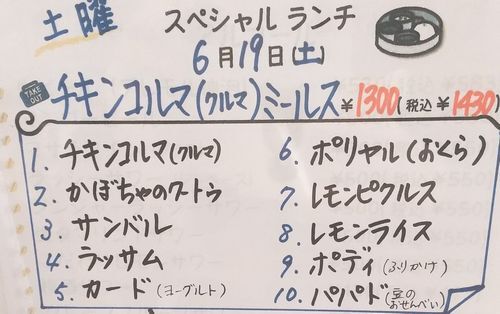 土曜
スペシャル ランチ
6月19日(土)
TAKE OUT
チキンコルマ(クルマ)ミールス ¥1300(税込 ¥1430)
1. チキンコルマ(クルマ)
2. かぼちゃのクートゥ
3 サンバル
4. ラッサム
5. カード(ヨーグルト)
6. ポリヤル(おくら)
7. レモンピクルス
8. レモンライス
9. ポディ(ふりかけ)
10. パパド(豆のおせんべい)